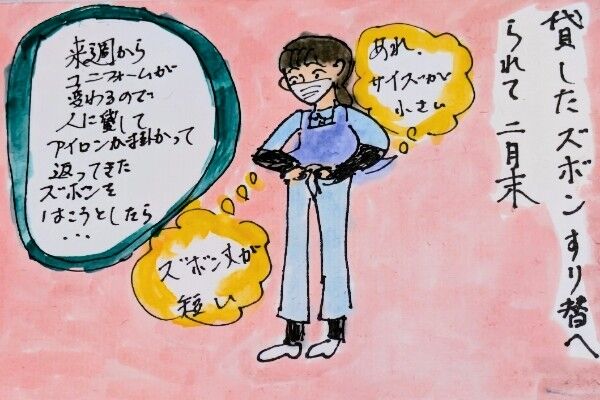 貸したズボンすり替へ
られて 二月末
あれ、
サイズが
小さい
来週から
ユニフォームが
変わるので
人に貸して
アイロンが掛かって
返ってきた
ズボンを
はこうとしたら
・・・
ズボン丈が
短い